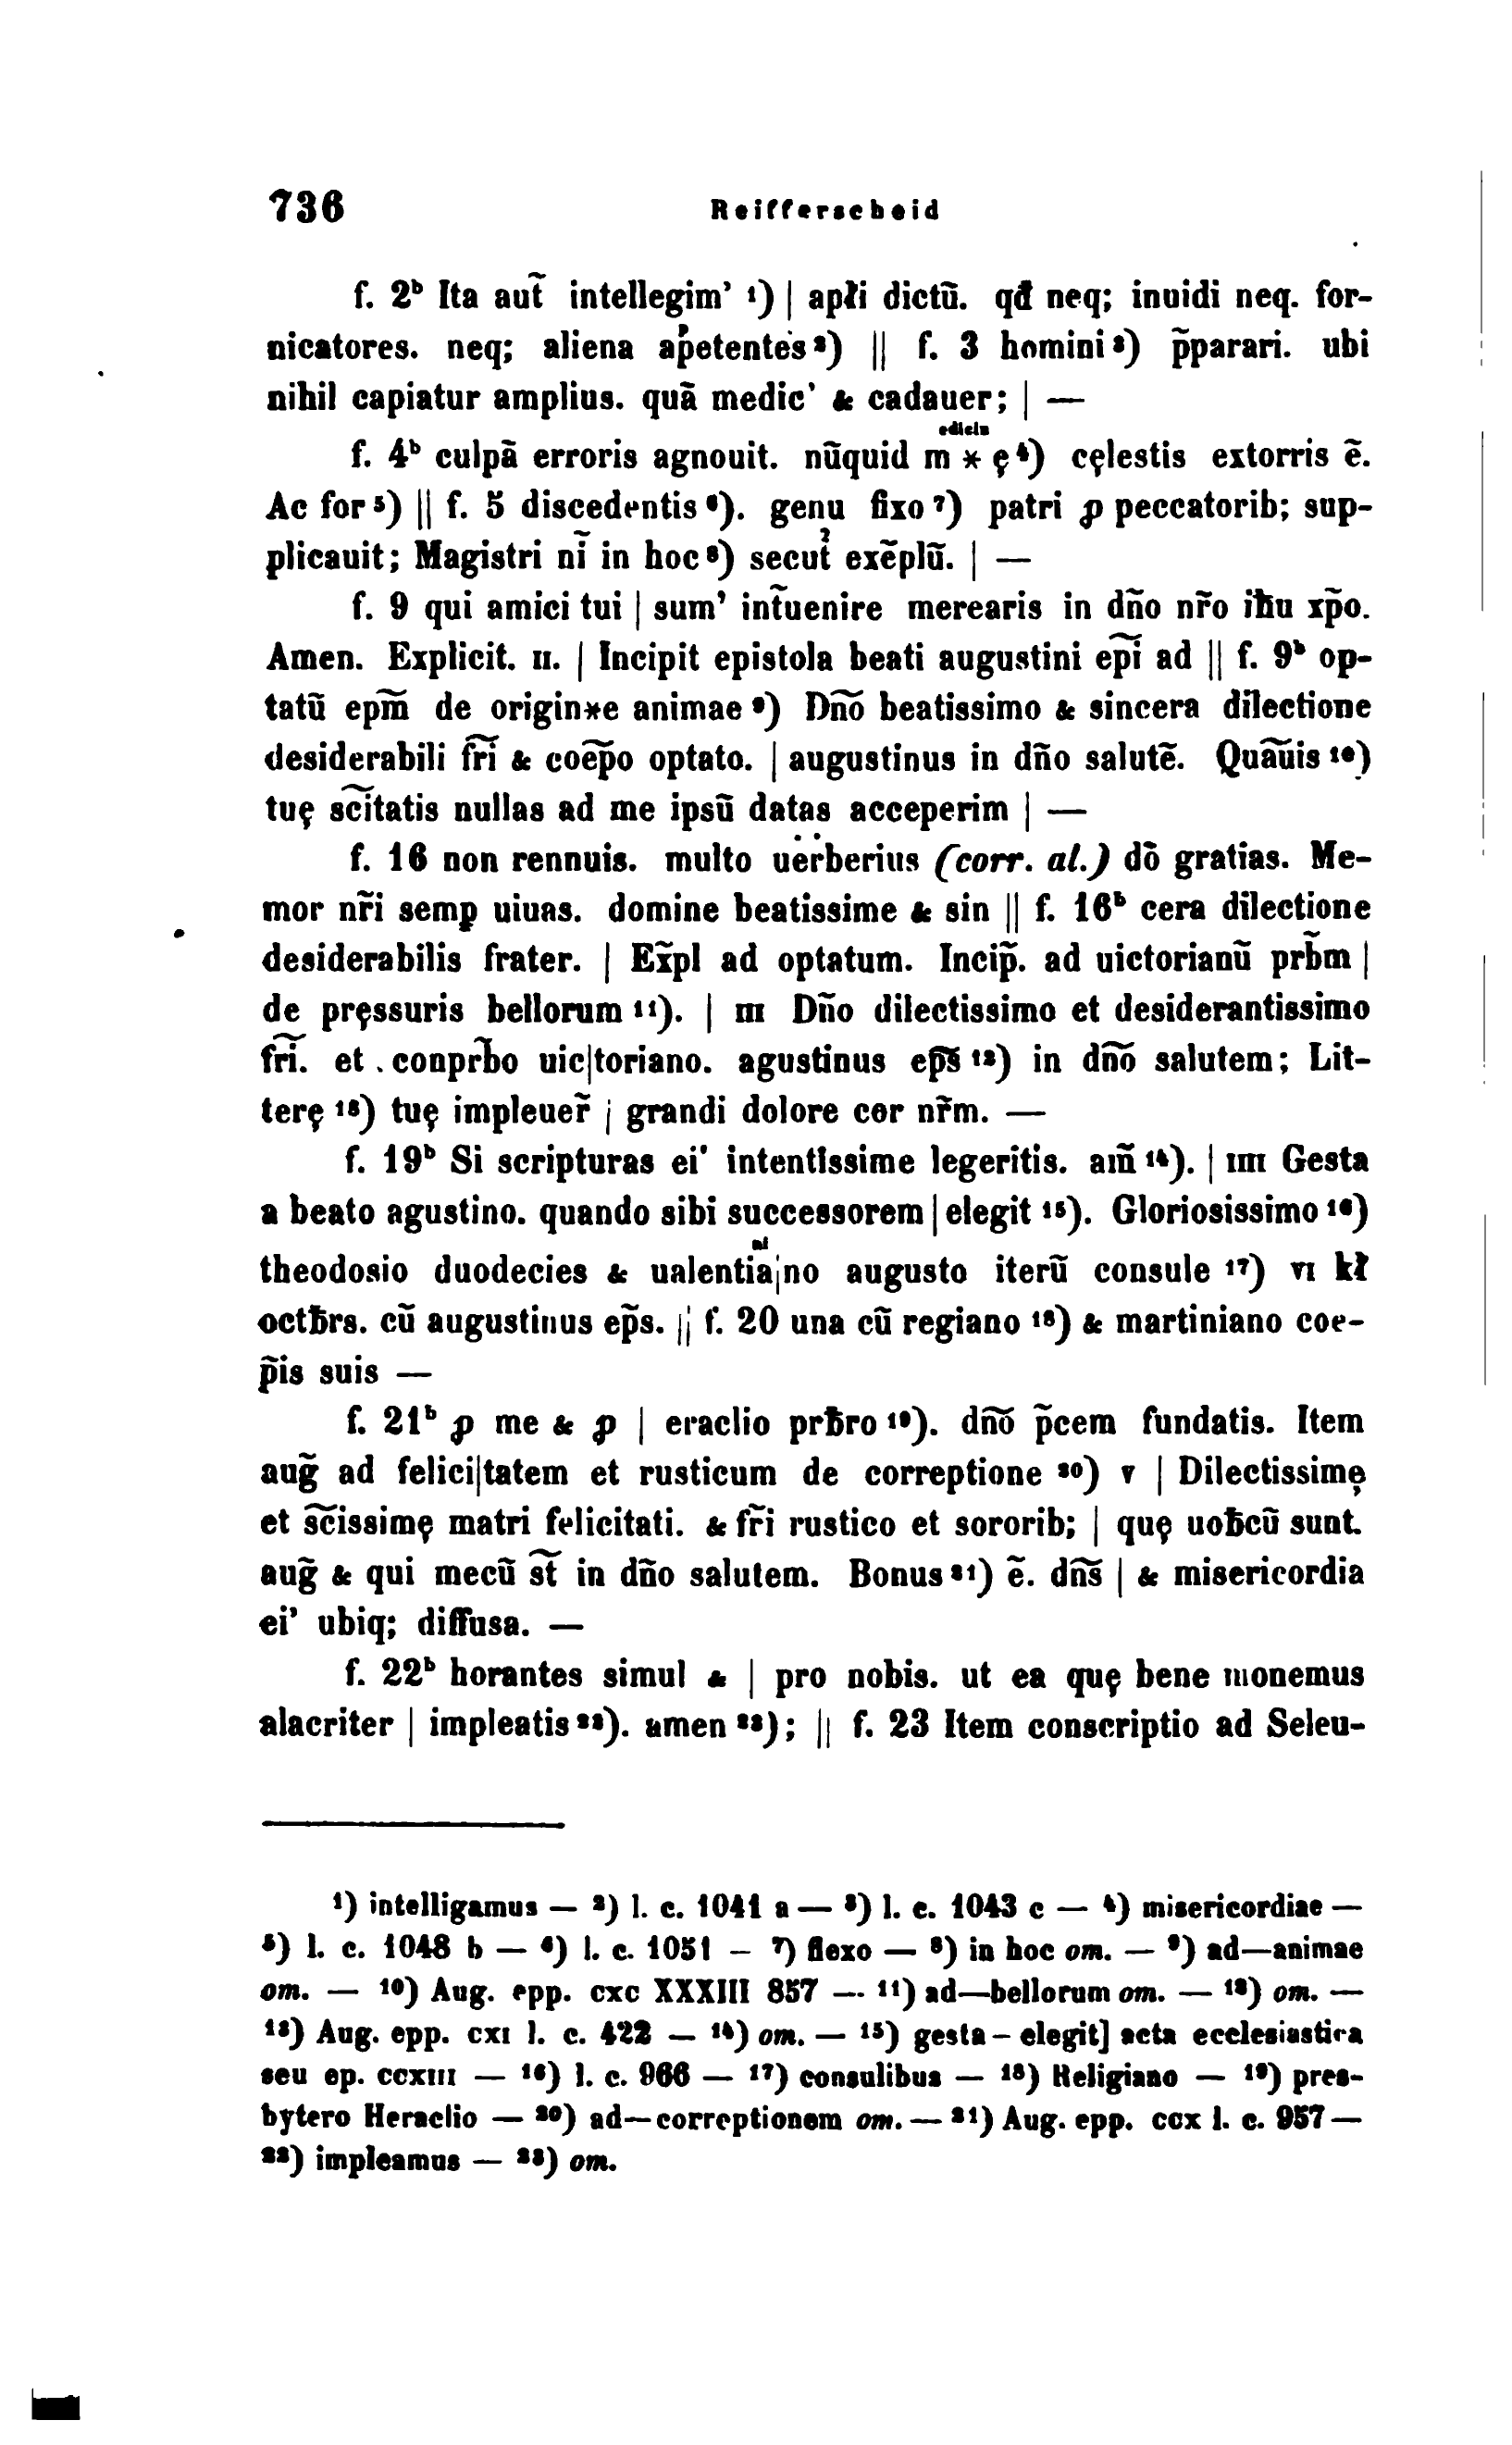 736 Reifferscheid
f. 2ᵇ Ita aut̃ intellegim' ¹) | apłi dictũ. qđ neq; inuidi neq. for-
nicatores. neq; aliena apetentes ²) || f. 3 homini ³) p̃parari. ubi
nihil capiatur amplius. quã medic' & cadauer; | —
edicin
f. 4ᵇ culpã erroris agnouit. nũquid m * ę ⁴) cęlestis extorris ẽ.
Ac for ⁵) || f. 5 discedentis ⁶). genu fixo ⁷) patri ꝑ peccatorib; sup-
plicauit; Magistri nĩ in hoc ⁸) secut̉ exẽplũ. | —
f. 9 qui amici tui | sum' int̃uenire merearis in dño nr̃o iħu xp̃o.
Amen. Explicit. II. | Incipit epistola beati augustini epĩ ad || f. 9ᵇ op-
tatũ epm̃ de origin*e animae ⁹) Dño beatissimo & sincera dilectione
desiderabili fr̃i & coep̃o optato. | augustinus in dño salutẽ. Quãuis ¹⁰)
tuę sc̃itatis nullas ad me ipsũ datas acceperim | —
f. 16 non rennuis. multo uėṙberius (corr. al.) dõ gratias. Me-
mor nr̃i semꝑ uiuas. domine beatissime & sin || f. 16ᵇ cera dilectione
desiderabilis frater. | Ex̃pl ad optatum. Incip̃. ad uictorianũ prb̃m |
de pręssuris bellorum ¹¹). | III Dño dilectissimo et desiderantissimo
fr̃i. et conprb̃o uic|toriano. agustinus ep̃s ¹²) in dñõ salutem; Lit-
terę ¹³) tuę impleuer̃ | grandi dolore cor nr̃m. —
f. 19ᵇ Si scripturas ei' intentissime legeritis. am̃ ¹⁴). | IIII Gesta
a beato agustino. quando sibi successorem | elegit ¹⁵). Gloriosissimo ¹⁶)
ni
theodosio duodecies & ualentia|no augusto iterũ consule ¹⁷) VI kł
octƀrs. cũ augustinus ep̃s. || f. 20 una cũ regiano ¹⁸) & martiniano coe-
p̃is suis —
f. 21ᵇ ꝑ me & ꝑ | eraclio prƀro ¹⁹). dñõ p̃cem fundatis. Item
aug̃ ad felici|tatem et rusticum de correptione ²⁰) V | Dilectissimę
et sc̃issimę matri felicitati. & fr̃i rustico et sororib; | quę uoƀcũ sunt.
aug̃ & qui mecũ st̃ in dño salutem. Bonus ²¹) ẽ. dñs̃ | & misericordia
ei' ubiq; diffusa. —
f. 22ᵇ horantes simul & | pro nobis. ut ea quę bene monemus
alacriter | impleatis ²²). amen ²³); || f. 23 Item conscriptio ad Seleu-
¹) intelligamus — ²) l. c. 1041 a — ³) l. c. 1043 c — ⁴) misericordiae —
⁵) l. c. 1048 b — ⁶) l. c. 1051 — ⁷) flexo — ⁸) in hoc om. — ⁹) ad—animae
om. — ¹⁰) Aug. epp. CXC XXXIII 857 — ¹¹) ad—bellorum om. — ¹²) om. —
¹³) Aug. epp. CXI l. c. 422 — ¹⁴) om. — ¹⁵) gesta—elegit] acta ecclesiastica
seu ep. CCXIII — ¹⁶) l. c. 966 — ¹⁷) consulibus — ¹⁸) Religiano — ¹⁹) pres-
bytero Heraclio — ²⁰) ad—correptionem om. — ²¹) Aug. epp. CCX l. c. 957 —
²²) impleamus — ²³) om.